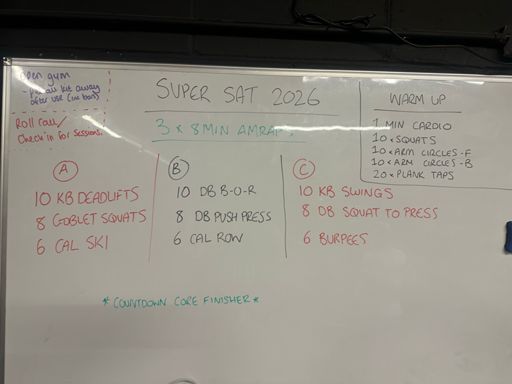 open gym
- put all kit away
after use (inc bars)
Roll call/
Check in for sessions.
SUPER SAT 2026
3 x 8 MIN AMRAPS
WARM UP
1 MIN CARDIO
10 x SQUATS
10 x ARM CIRCLES - F
10 x ARM CIRCLES - B
20 x PLANK TAPS
A
10 KB DEADLIFTS
8 GOBLET SQUATS
6 CAL SKI
B
10 DB B-O-R
8 DB PUSH PRESS
6 CAL ROW
C
10 KB SWINGS
8 DB SQUAT TO PRESS
6 BURPEES
* COUNTDOWN CORE FINISHER *